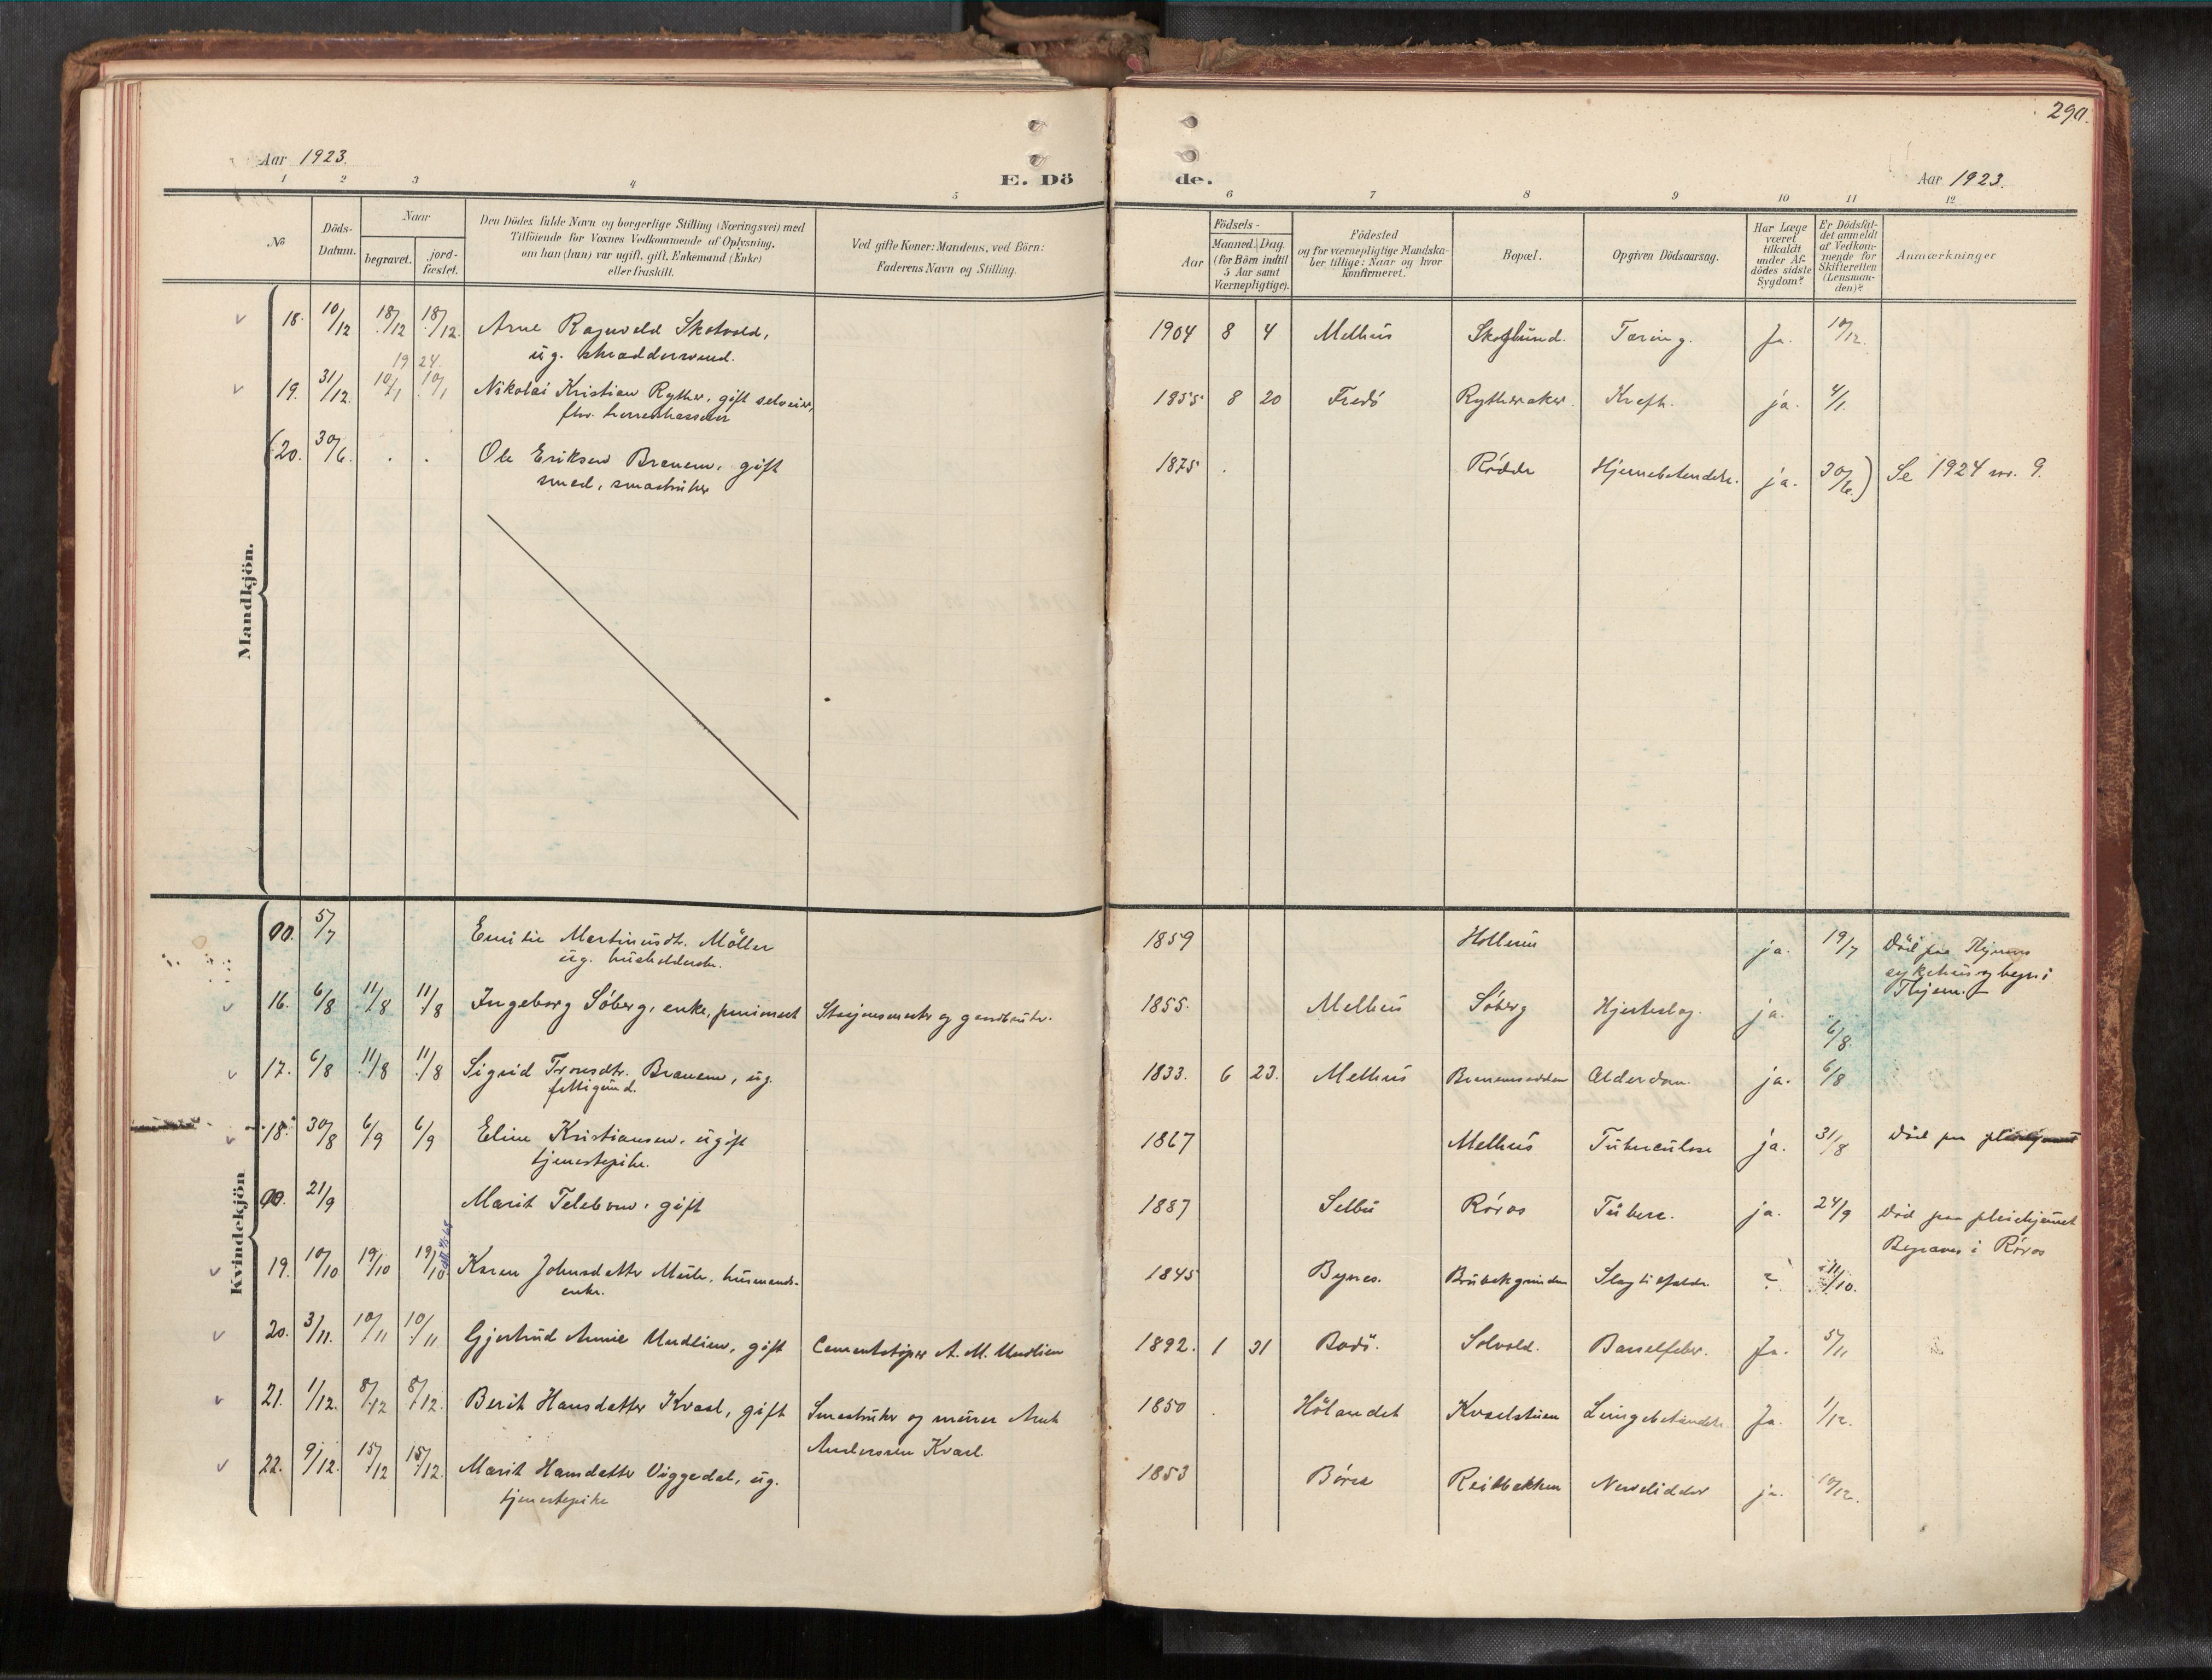 290.
Aar 1923.
E. Döde.
Aar 1923.
1 2 3 4 5 6 7 8 9 10 11 12
No
Döds-Datum.
Naar
begravet.
jord-fæstet.
Den Dödes fulde Navn og borgerlige Stilling (Næringsvei) med
Tilföiende for Voxnes Vedkommende af Oplysning,
om han (hun) var ugift, gift, Enkemand (Enke)
eller fraskilt.
Ved gifte Koner: Mandens, ved Börn:
Faderens Navn og Stilling.
Födsels-
Aar
Maaned. Dag.
(for Börn indtil
5 Aar samt
Værnepligtige).
Födested
og for værnepligtige Mandska-
ber tillige: Naar og hvor
konfirmeret.
Bopæl.
Opgiven Dödsaarsag.
Har Læge
været
tilkaldt
under Af-
dödes sidste
Sygdom?
Er Dödsfal-
det anmeldt
af Vedkom-
mende for
Skifteretten
(Lensman-
den)?
Anmærkninger
Mandkjön.
18. 10/12 18/12 18/12 Arne Ragnvald Skotvold, 1904 8 4 Melhus Skoglund. Tæring. Ja. 10/12.
ug.
19 24.
19. 31/12. 10/1 10/1 Nikolai Kristian Ryther, gift selveier, 1855 8 20 Rytheraker. Kreft. ja. 4/1.
(20. 30/6. . . Ole Eriksen Brenem, gift 1875 . Rödde Hjernebetendelse. ja. 30/6.) Se 1924 nr. 9.
smed, smaabruker
Kvindekjön
00. 5/7 Emilie Martinusdtr. Möller 1859 Hollum ja. 19/7 Död paa Thjems
ug. husholderske. sykehus og begr. i
Thjem.
16. 6/8 11/8 11/8 Ingeborg Söberg, enke, Stasjonsmester og gaardbruker. 1855. Melhus Söberg Hjerteslag. ja. 6/8.
17. 6/8 11/8 11/8 Sigrid Tronsdtr. Brauem, ug. 1833. 6 23. Melhus Alderdom. ja. 6/8
fattigund.
18. 30/8 6/9 6/9 Eline Kristiansen, ugift 1867 Melhus Tuberculose ja. 31/8 Död paa pleiehjemmet
tjenestepike.
00. 21/9 Marit Telebon, gift 1887 Selbu Röros Tuberc. ja. 24/9 Död paa pleiehjemmet
Begraves i Röros
19. 10/10 19/10 19/10 Karen Johnsdatter husmands- 1845 Bynes. Brubakgrinden Slagtilfælde. ? 11/10.
enke.
20. 3/11. 10/11 10/11 Gjertrud Annie Undlien, gift Cementstöper A. M. Undlien 1892. 1 31 Bodö. Solvold. Barselfeber. Ja. 5/11
21. 1/12. 8/12 8/12. Berit Hansdatter Kvaal, gift Smaabruker og murer Arnt 1850 . Hölandet Kvaalstuen Lungebetændelse Ja. 1/12.
Anderssen Kvaal.
22. 9/12. 15/12 15/12. Marit Hansdatter Viggedal, ug. 1853 Börsa Reitbakken ja. 10/12.
tjenestepike